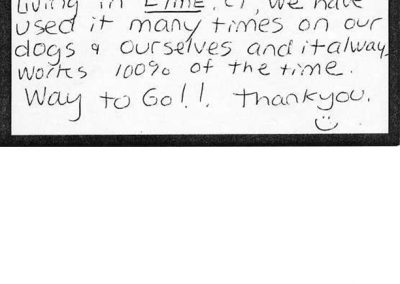 Living in Lyme, CT, we have
used it many times on our
dogs & ourselves and it alway
works 100% of the time.
Way to Go!! Thankyou.